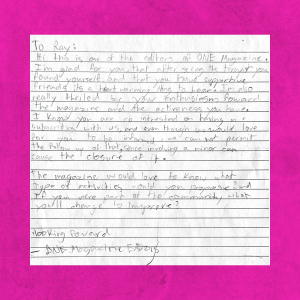 To Ray:
Hi this is one of the editors of ONE Magazine.
I'm glad for you, that after so on the you
found yourself. and that you have supportive
friends its a heart warming thing to hear. I'm also
really thrilled by your enthusiasm toward
the magazine and the activeness you have.
I know you are so interested on having a
subscription with us, and even though we would love
for you to be we can't permit
the follow up of that, since involving a minor can
cause the closure of it.
The magazine would love to know what
type of activities would you and
if you were part of the community, what
you'll change to magazine?
looking forward
- ONE Magazine Editors